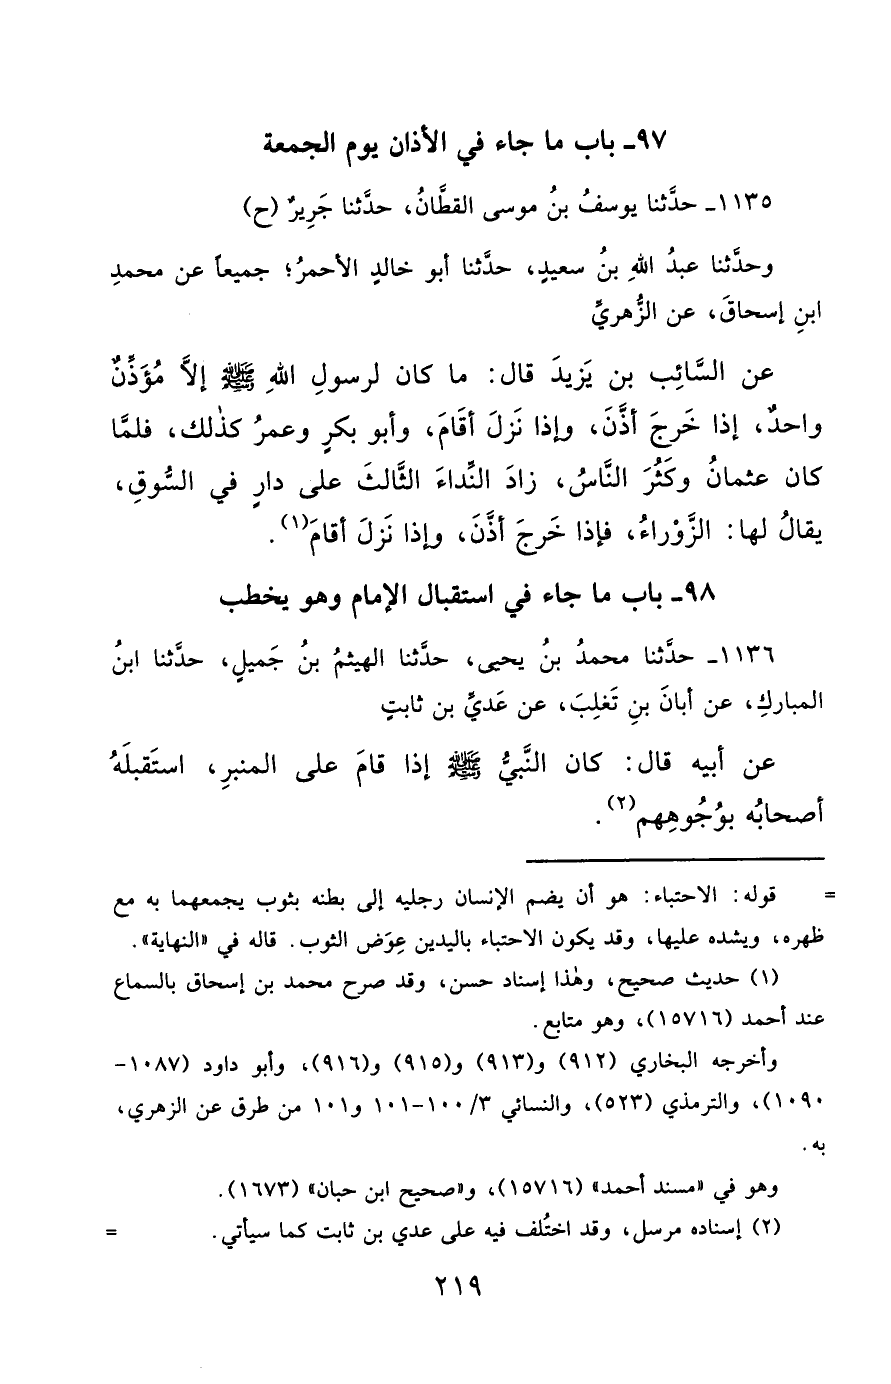 ٩٧ـ باب ما جاء في الأذان يوم الجمعة
١١٣٥ـ حدَّثنا يوسفُ بنُ موسى القطَّانُ، حدَّثنا جَرِيرٌ (ح)
وحدَّثنا عبدُ اللهِ بنُ سعيدٍ، حدَّثنا أبو خالدٍ الأحمرُ؛ جميعاً عن محمدِ
ابنِ إسحاقَ، عن الزُّهريِّ
عن السَّائِب بن يَزيدَ قال: ما كان لرسولِ اللهِ ﷺ إلاَّ مُؤَذِّنٌ
واحدٌ، إذا خَرجَ أذَّنَ، وإذا نَزلَ أقَامَ، وأبو بكرٍ وعمرُ كذٰلك، فلمَّا
كان عثمانُ وكَثُرَ النَّاسُ، زادَ النِّداءَ الثَّالثَ على دارٍ في السُّوقِ،
يقالُ لها: الزَّوْراءُ، فإذا خَرجَ أذَّنَ، وإذا نَزلَ أقامَ(١).
٩٨ـ باب ما جاء في استقبال الإمام وهو يخطب
١١٣٦ـ حدَّثنا محمدُ بنُ يحيى، حدَّثنا الهيثمُ بنُ جَميلٍ، حدَّثنا ابنُ
المباركِ، عن أبانَ بنِ تَغلِبَ، عن عَديِّ بن ثابتٍ
عن أبيه قال: كان النَّبيُّ ﷺ إذا قامَ على المنبرِ، استَقبلَهُ
أصحابُه بوُجُوهِهم(٢).
= قوله: الاحتباء: هو أن يضم الإنسان رجليه إلى بطنه بثوب يجمعهما به مع
ظهره، ويشده عليها، وقد يكون الاحتباء باليدين عِوَض الثوب. قاله في «النهاية».
(١) حديث صحيح، وهٰذا إسناد حسن، وقد صرح محمد بن إسحاق بالسماع
عند أحمد (١٥٧١٦)، وهو متابع.
وأخرجه البخاري (٩١٢) و(٩١٣) و(٩١٥) و(٩١٦)، وأبو داود (١٠٨٧-
١٠٩٠)، والترمذي (٥٢٣)، والنسائي ٣/ ١٠٠-١٠١ و١٠١ من طرق عن الزهري،
به.
وهو في «مسند أحمد» (١٥٧١٦)، و«صحيح ابن حبان» (١٦٧٣).
(٢) إسناده مرسل، وقد اختُلف فيه على عدي بن ثابت كما سيأتي. =
٢١٩